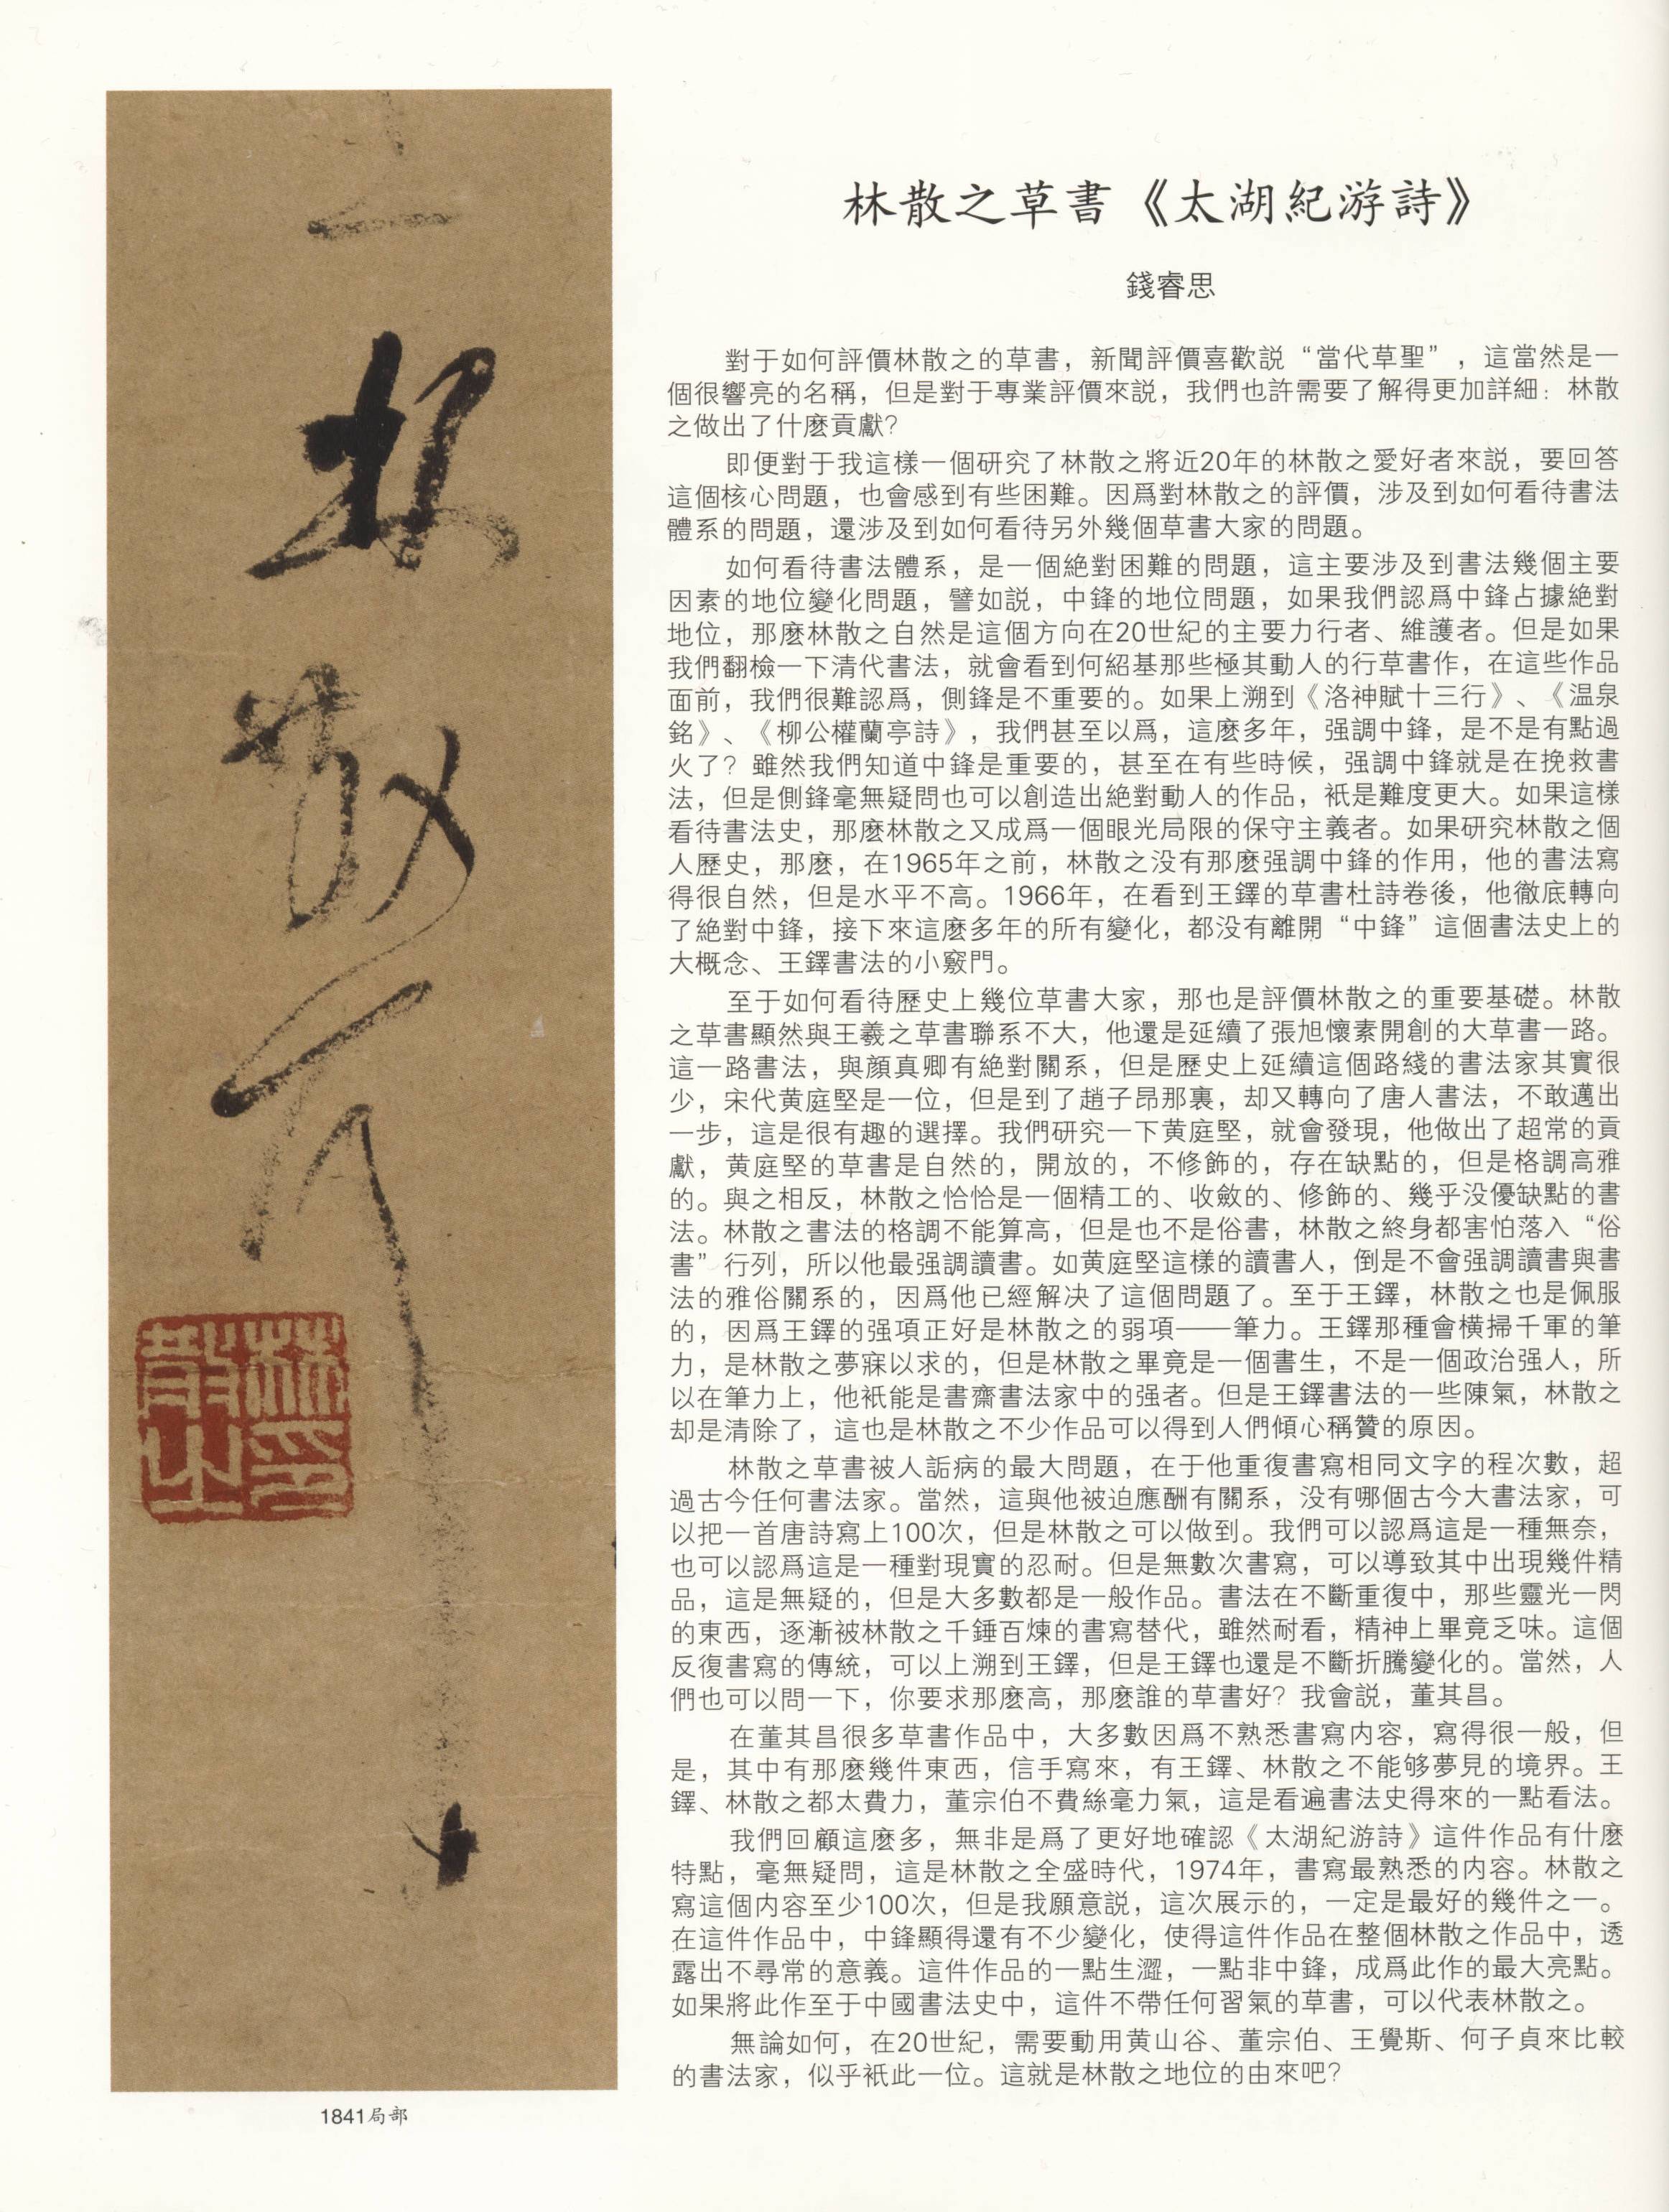 林散之草書《太湖紀游詩》
錢睿思
對于如何評價林散之的草書，新聞評價喜歡説“當代草聖”，這當然是一
個很響亮的名稱，但是對于專業評價來説，我們也許需要了解得更加詳細：林散
之做出了什麽貢獻？
即便對于我這樣一個研究了林散之將近20年的林散之愛好者來説，要回答
這個核心問題，也會感到有些困難。因爲對林散之的評價，涉及到如何看待書法
體系的問題，還涉及到如何看待另外幾個草書大家的問題。
如何看待書法體系，是一個絶對困難的問題，這主要涉及到書法幾個主要
因素的地位變化問題，譬如説，中鋒的地位問題，如果我們認爲中鋒占據絶對
地位，那麽林散之自然是這個方向在20世紀的主要力行者、維護者。但是如果
我們翻檢一下清代書法，就會看到何紹基那些極其動人的行草書作，在這些作品
面前，我們很難認爲，側鋒是不重要的。如果上溯到《洛神賦十三行》、《温泉
銘》、《柳公權蘭亭詩》，我們甚至以爲，這麽多年，强調中鋒，是不是有點過
火了？雖然我們知道中鋒是重要的，甚至在有些時候，强調中鋒就是在挽救書
法，但是側鋒毫無疑問也可以創造出絶對動人的作品，衹是難度更大。如果這樣
看待書法史，那麽林散之又成爲一個眼光局限的保守主義者。如果研究林散之個
人歷史，那麽，在1965年之前，林散之没有那麽强調中鋒的作用，他的書法寫
得很自然，但是水平不高。1966年，在看到王鐸的草書杜詩卷後，他徹底轉向
了絶對中鋒，接下來這麽多年的所有變化，都没有離開“中鋒”這個書法史上的
大概念、王鐸書法的小竅門。
至于如何看待歷史上幾位草書大家，那也是評價林散之的重要基礎。林散
之草書顯然與王羲之草書聯系不大，他還是延續了張旭懷素開創的大草書一路。
這一路書法，與顔真卿有絶對關系，但是歷史上延續這個路綫的書法家其實很
少，宋代黄庭堅是一位，但是到了趙子昂那裏，却又轉向了唐人書法，不敢邁出
一步，這是很有趣的選擇。我們研究一下黄庭堅，就會發現，他做出了超常的貢
獻，黄庭堅的草書是自然的，開放的，不修飾的，存在缺點的，但是格調高雅
的。與之相反，林散之恰恰是一個精工的、收斂的、修飾的、幾乎没優缺點的書
法。林散之書法的格調不能算高，但是也不是俗書，林散之終身都害怕落入“俗
書”行列，所以他最强調讀書。如黄庭堅這樣的讀書人，倒是不會强調讀書與書
法的雅俗關系的，因爲他已經解决了這個問題了。至于王鐸，林散之也是佩服
的，因爲王鐸的强項正好是林散之的弱項——筆力。王鐸那種會横掃千軍的筆
力，是林散之夢寐以求的，但是林散之畢竟是一個書生，不是一個政治强人，所
以在筆力上，他衹能是書齋書法家中的强者。但是王鐸書法的一些陳氣，林散之
却是清除了，這也是林散之不少作品可以得到人們傾心稱贊的原因。
林散之草書被人詬病的最大問題，在于他重復書寫相同文字的程次數，超
過古今任何書法家。當然，這與他被迫應酬有關系，没有哪個古今大書法家，可
以把一首唐詩寫上100次，但是林散之可以做到。我們可以認爲這是一種無奈，
也可以認爲這是一種對現實的忍耐。但是無數次書寫，可以導致其中出現幾件精
品，這是無疑的，但是大多數都是一般作品。書法在不斷重復中，那些靈光一閃
的東西，逐漸被林散之千錘百煉的書寫替代，雖然耐看，精神上畢竟乏味。這個
反復書寫的傳統，可以上溯到王鐸，但是王鐸也還是不斷折騰變化的。當然，人
們也可以問一下，你要求那麽高，那麽誰的草書好？我會説，董其昌。
在董其昌很多草書作品中，大多數因爲不熟悉書寫内容，寫得很一般，但
是，其中有那麽幾件東西，信手寫來，有王鐸、林散之不能够夢見的境界。王
鐸、林散之都太費力，董宗伯不費絲毫力氣，這是看遍書法史得來的一點看法。
我們回顧這麽多，無非是爲了更好地確認《太湖紀游詩》這件作品有什麽
特點，毫無疑問，這是林散之全盛時代，1974年，書寫最熟悉的内容。林散之
寫這個内容至少100次，但是我願意説，這次展示的，一定是最好的幾件之一。
在這件作品中，中鋒顯得還有不少變化，使得這件作品在整個林散之作品中，透
露出不尋常的意義。這件作品的一點生澀，一點非中鋒，成爲此作的最大亮點。
如果將此作至于中國書法史中，這件不帶任何習氣的草書，可以代表林散之。
無論如何，在20世紀，需要動用黄山谷、董宗伯、王覺斯、何子貞來比較
的書法家，似乎衹此一位。這就是林散之地位的由來吧？
林散之印
1841局部